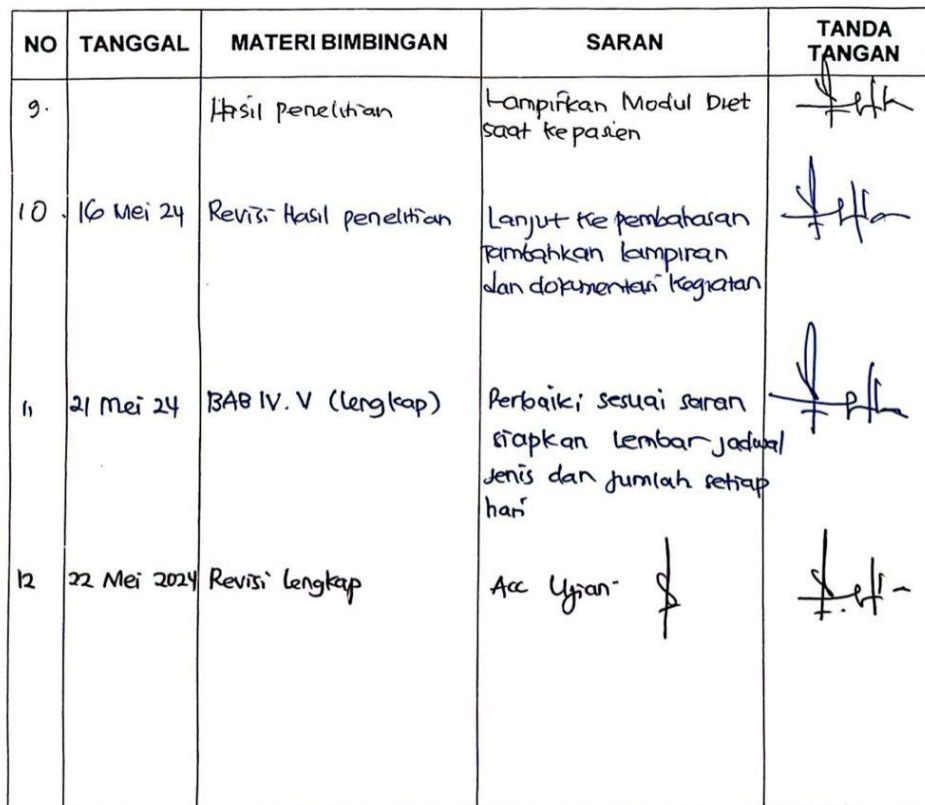 NO TANGGAL MATERI BIMBINGAN SARAN TANDA TANGAN
9. Hasil penelitian Lampirkan Modul Diet
saat ke pasien
10. 16 Mei 24 Revisi Hasil penelitian Lanjut ke pembahasan
Tambahkan lampiran
dan dokumentasi kegiatan
11 21 Mei 24 BAB IV. V (lengkap) Perbaiki sesuai saran
siapkan lembar jadwal
jenis dan jumlah setiap
hari
12 22 Mei 2024 Revisi lengkap Acc Ujian